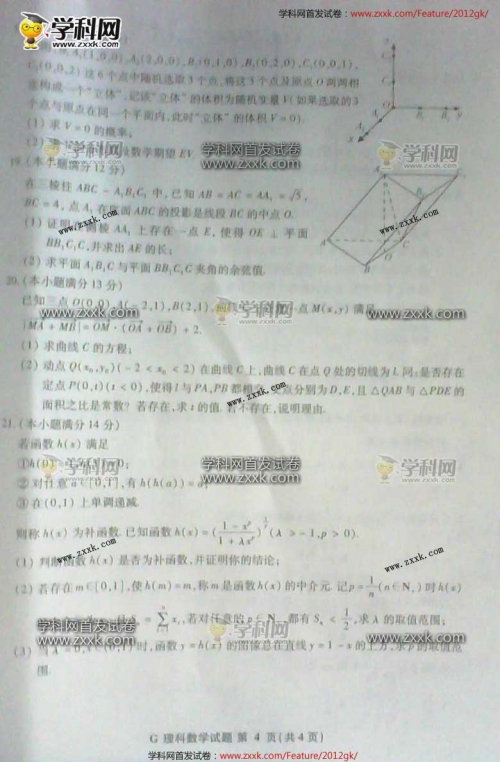 学科网首发试卷 www.zxxk.com/Feature/2012gk/
A₁(1,0,0),A₂(2,0,0),B₁(0,1,0),B₂(0,2,0),C₁(0,0,1),
C₂(0,0,2)这6个点中随机选取3个点,将这3个点及原点O两两相
连构成一个“立体”,记该“立体”的体积为随机变量V(如果选取的3
个点与原点在同一个平面内,此时“立体”的体积V=0).
(1)求V=0的概率;
数学期望EV
19.(本小题满分12分)
在三棱柱ABC-A₁B₁C₁中,已知AB=AC=AA₁=√5,
BC=4,点A₁在底面ABC的投影是线段BC的中点O.
(1)证明 侧棱AA₁上存在一点E,使得OE⊥平面
BB₁C₁C,并求出AE的长;
(2)求平面A₁B₁C与平面BB₁C₁C夹角的余弦值.
20.(本小题满分13分)
已知三点O(0,0),A(-2,1),B(2,1), 点M(x,y)满足
|MA+MB|=OM·(OA+OB)+2.
(1)求曲线C的方程;
(2)动点Q(x₀,y₀)(-2<x₀<2)在曲线C上,曲线C在点Q处的切线为l.问:是否存在
定点P(0,t)(t<0),使得l与PA,PB都相 交点分别为D,E,且△QAB与△PDE的
面积之比是常数?若存在,求t的值.若不存在,说明理由.
21.(本小题满分14分)
若函数h(x)满足
①h(0)
②对任意a∈[0,1],有h(h(a))=a;
③在(0,1)上单调递减.
则称h(x)为补函数.已知函数h(x)=((1-xᵖ)/(1+λxᵖ))^(1/p)(λ>-1,p>0).
(1)判断函数h(x)是否为补函数,并证明你的结论;
(2)若存在m∈[0,1],使h(m)=m,称m是函数h(x)的中介元.记p=1/n(n∈N₊)时h(x)
若对任意的n∈N₊ 都有Sₙ<1/2,求λ的取值范围;
(3) 时,函数y=h(x)的图像总在直线y=1-x的上方,求p的取值范
围.
G 理科数学试题 第 4 页(共4页)
学科网首发试卷 www.zxxk.com/Feature/2012gk/
学科网
zxxk.com
学科网首发试卷
www.zxxk.com